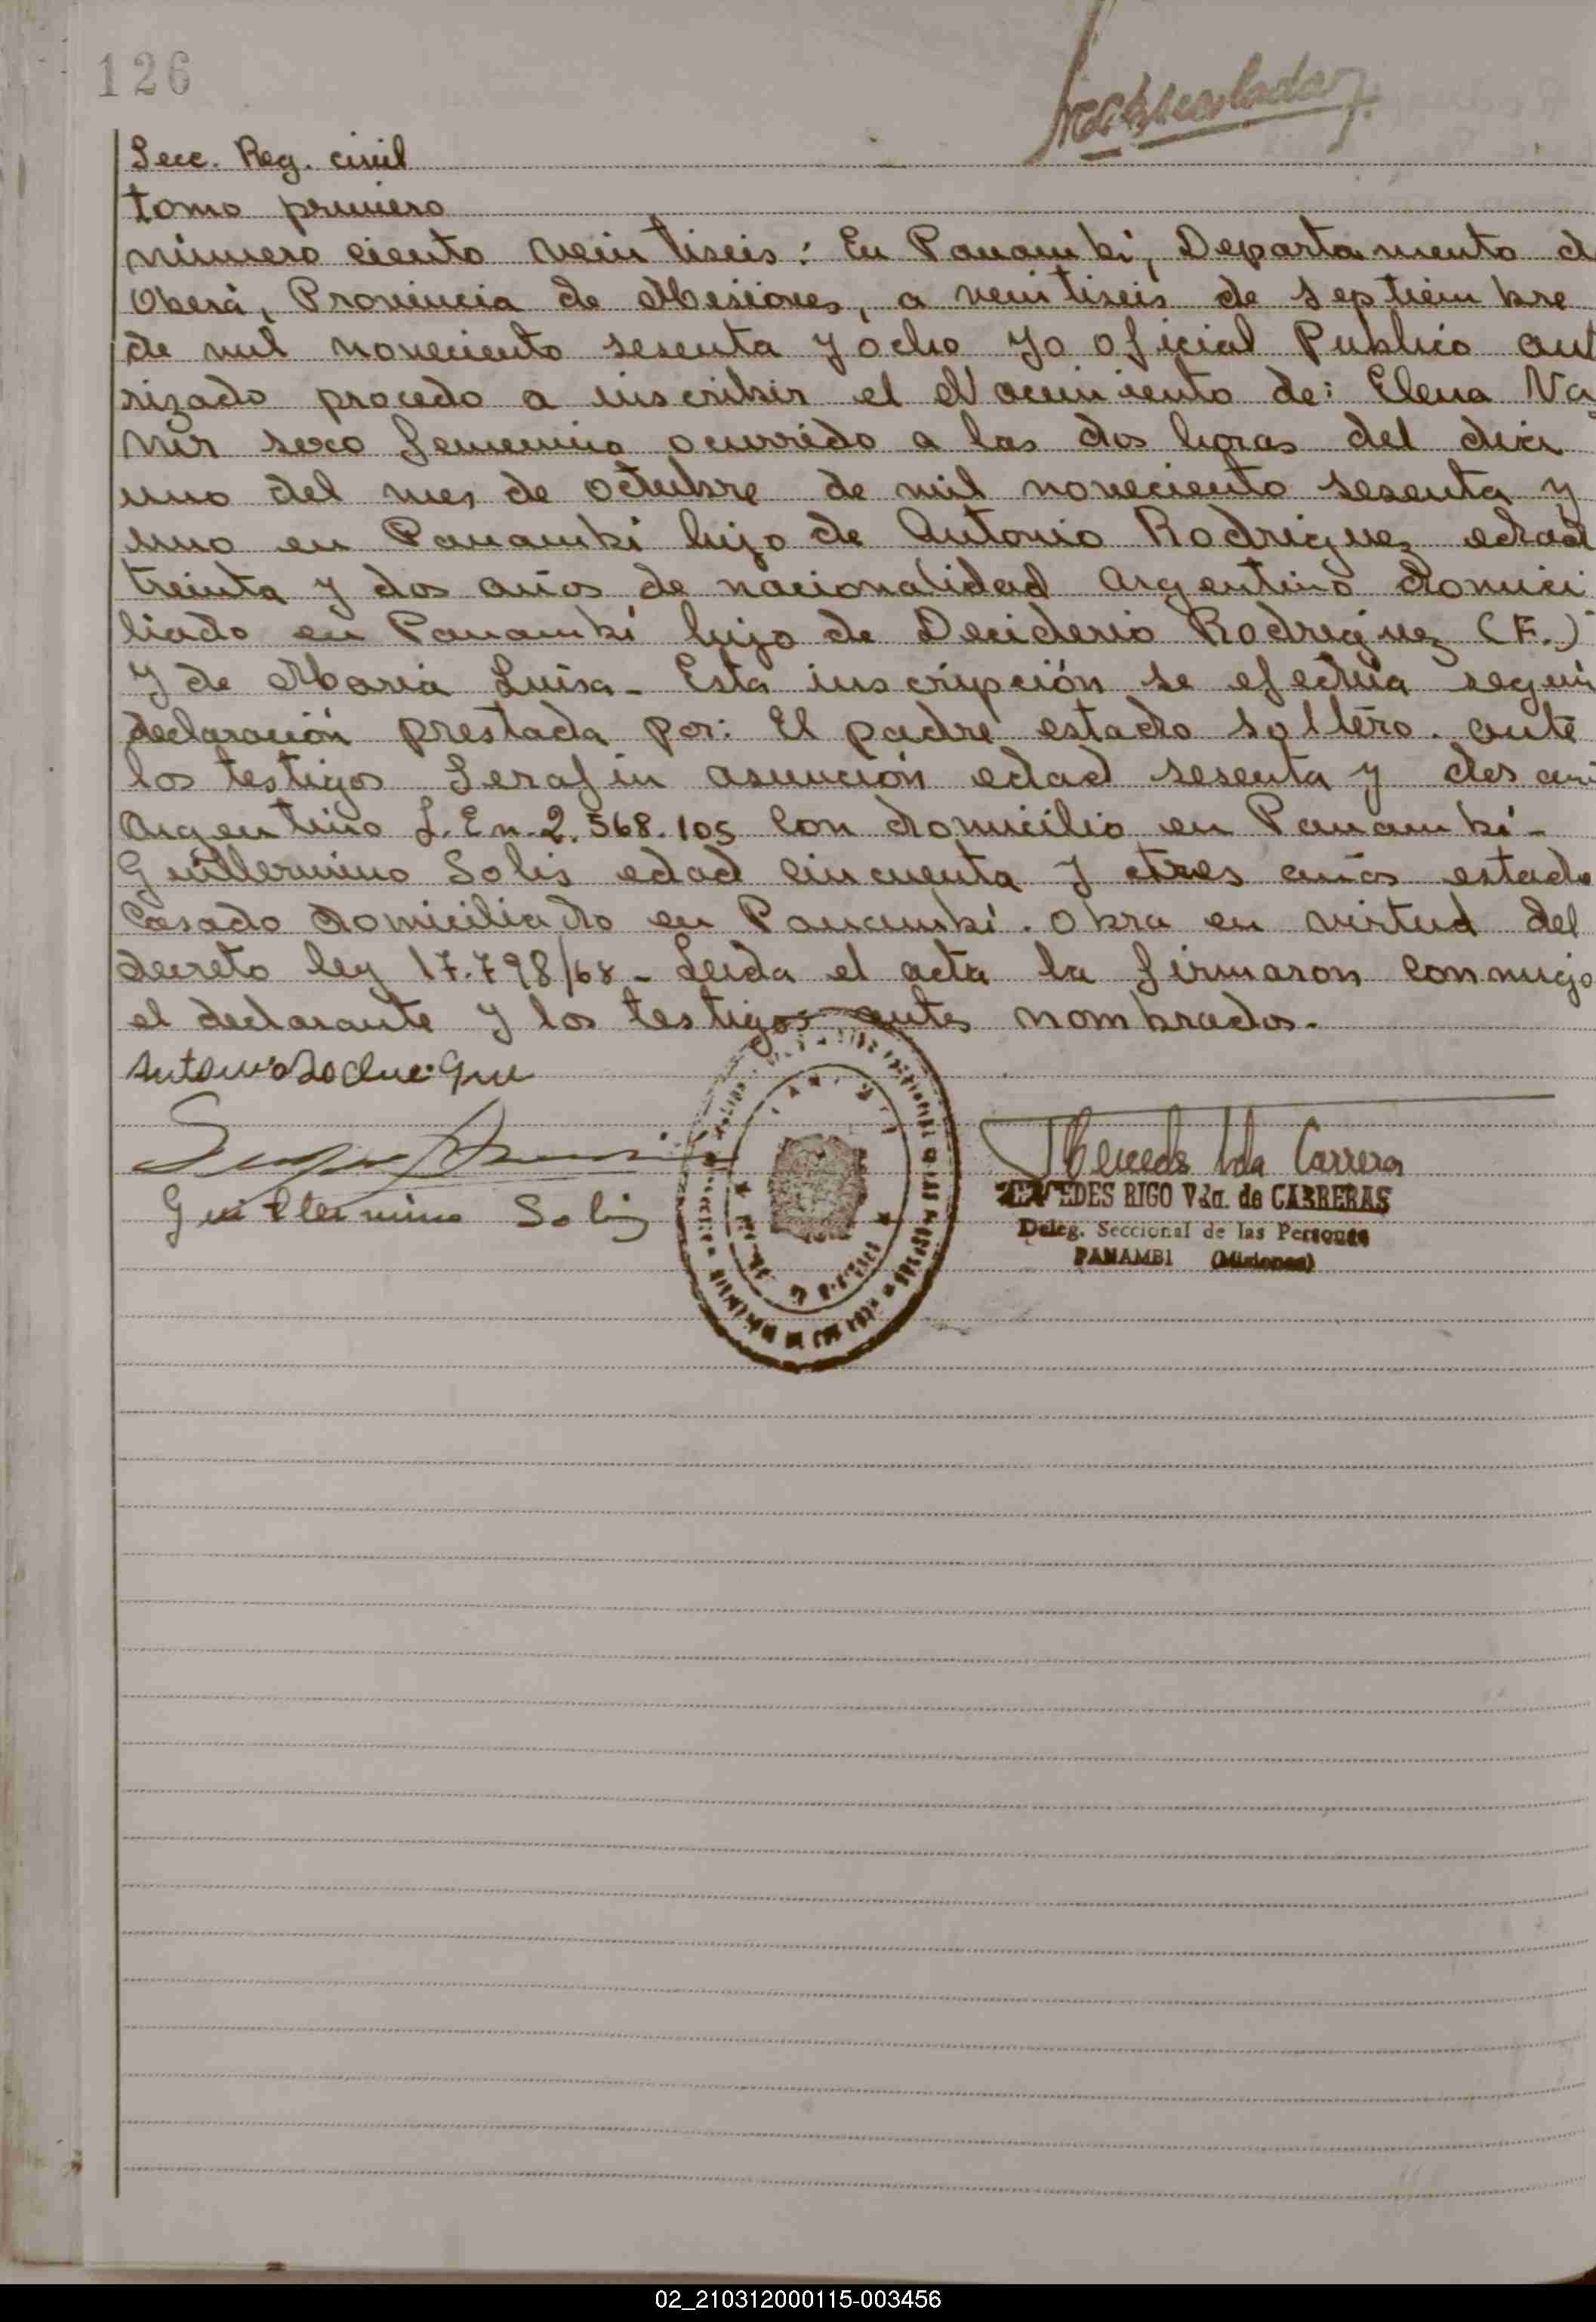 126
Matriculada
Secc. Reg. civil
tomo primero
número ciento veintiseis: En Panambí, Departamento d
Oberá, Provincia de Misiones, a veintiseis de septiembre
de mil noveciento sesenta y ocho yo oficial Publico aut
rizado procedo a inscribir el Nacimiento de: Elena Va
nir sexo femenino ocurrido a las dos horas del dia
uno del mes de octubre de mil noveciento sesenta y
uno en Panambí hijo de Antonio Rodriguez edad
treinta y dos años de nacionalidad argentino domici
liado en Panambí hijo de Deciderio Rodriguez (F.)
y de Maria Luisa- Esta inscripción se efectúa según
declaración prestada por: El padre estado soltero. ante
los testigos Serafin asunción edad sesenta y dos añ
argentino L. En. 2.568.105 con domicilio en Panambí-
Guillermino Solis edad cincuenta y tres años estado
Casado domiciliado en Panambí. Obra en virtud del
decreto ley 17.798/68- Leida el acta la firmaron conmigo
el declarante y los testigos antes nombrados.
Guillermino Solis
Carrera
RIGO Vda. de CABRERAS
Deleg. Seccional de las Personas
PANAMBI (Misiones)
02_210312000115-003456